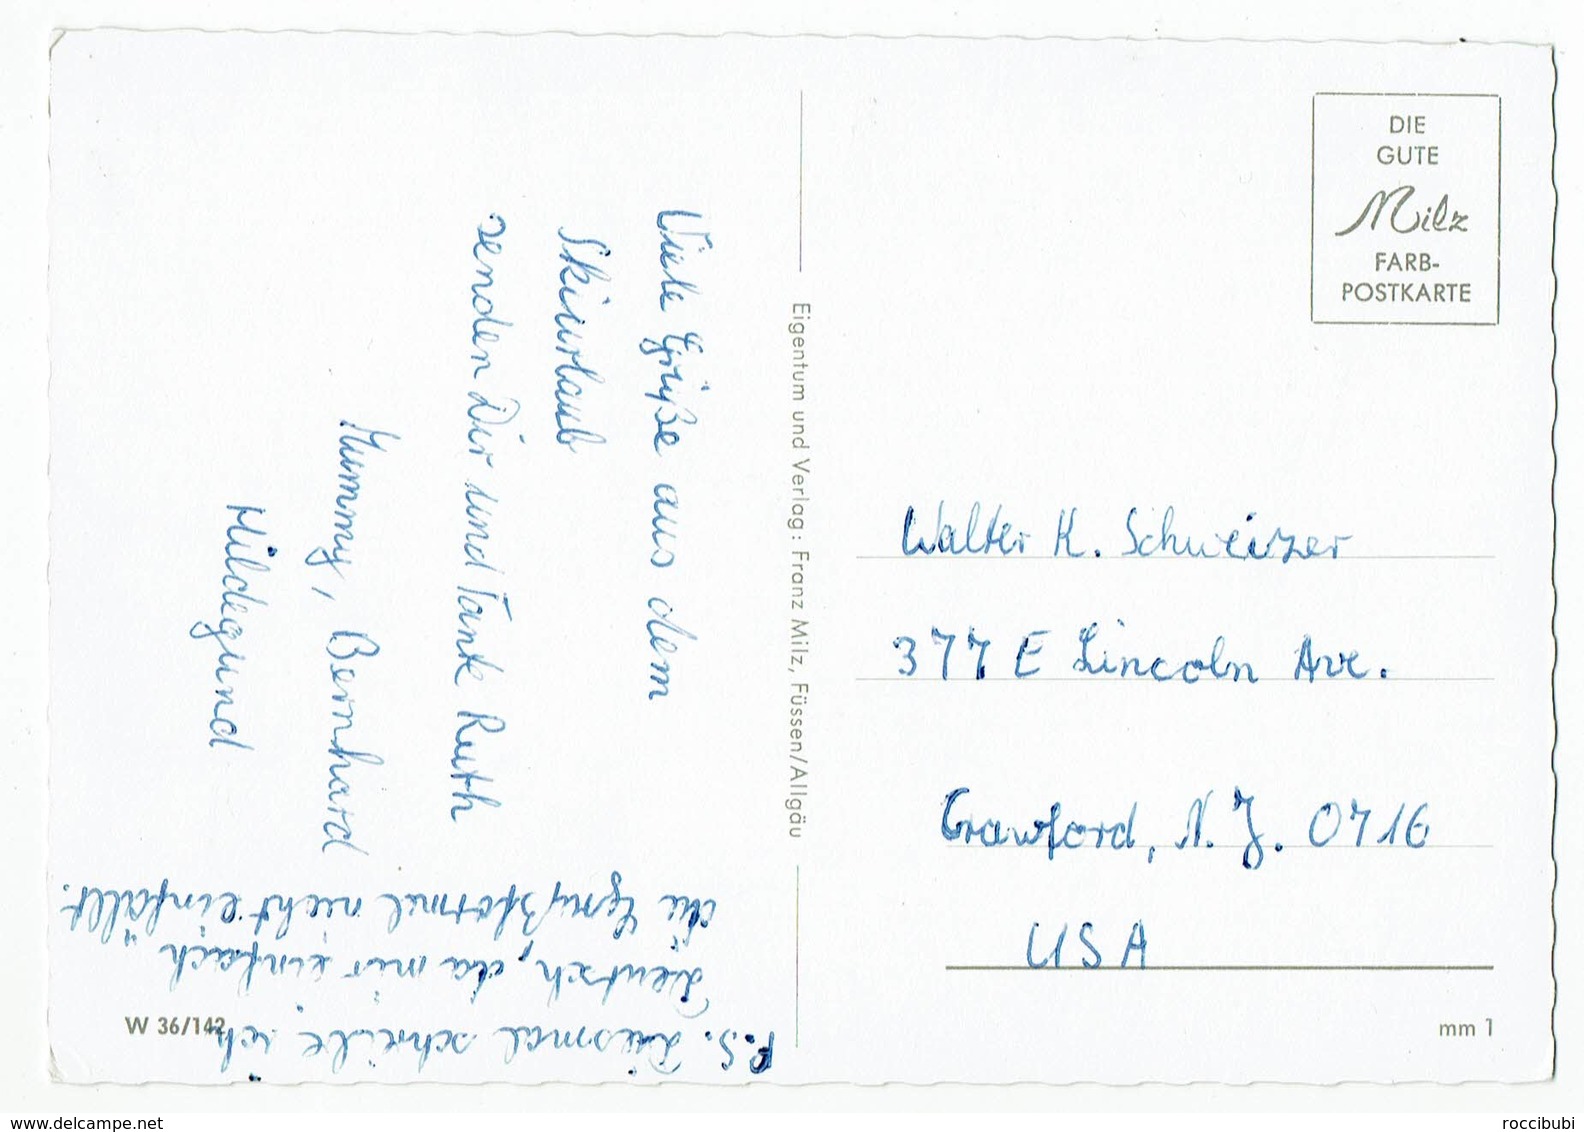 Viele Grüße aus dem
Skiurlaub
senden Dir und Tante Ruth
Mummy, Bernhard
Hildegund
P.S. Diesmal schreibe ich
Deutsch, da mir einfach
die Grußformel nicht einfällt.
Eigentum und Verlag: Franz Milz, Füssen/Allgäu
W 36/142
DIE
GUTE
Milz
FARB-
POSTKARTE
Walter K. Schweizer
377 E Lincoln Ave.
Crawford, N.J. 0716
USA
mm 1
www.delcampe.net
roccibubi